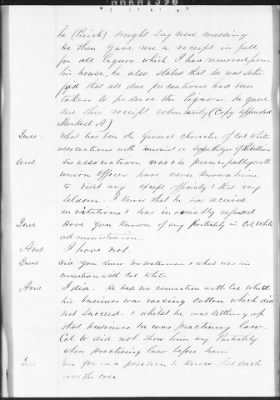 he (Reich) might say were missing
He then gave me a receipt in full
for all liquor which I had removed from
his house, he also stated that he was satis
fied that all due precautions had been
taken to preserve the liquor. He gave
me this receipt voluntarily (Copy appended
Marked A)
Ques. What has been the General character of Col White
associations with
Ans His association has been principally with
Union Officers have never known him
to visit any except officially & that very
seldom. I know that he has received
invitations & has invariably refused
Ques Have you known of any Partiality in Col White
administration.
Ans. I have not
Ques Did you know & what was his
connection with Col White
Ans I did. He had no connection with Col White
his business was raising cotton which did
not succeed. & whilst he was setting up
that business he was practicing law.
Col W did not show him any Partiality
when practicing law before him.
Ques Are you in a position to know that such
was the case